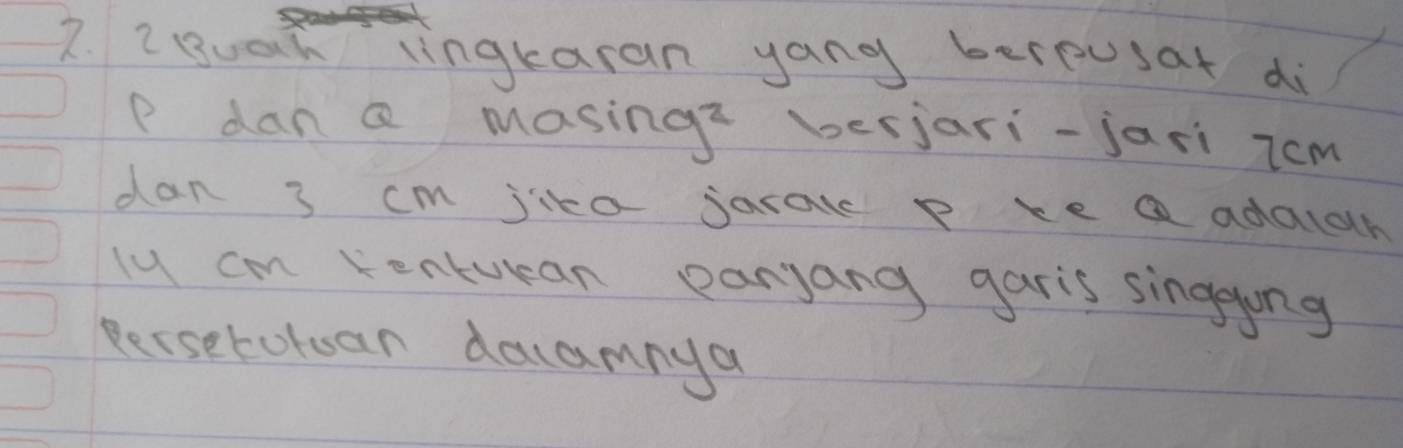 7. 2 Buah lingkaran yang berpusat di
P dan Q masing² berjari-jari 7cm
dan 3 cm jika jarak P ke Q adalah
14 cm tentukan panjang garis singgung
Persekutuan dalamnya